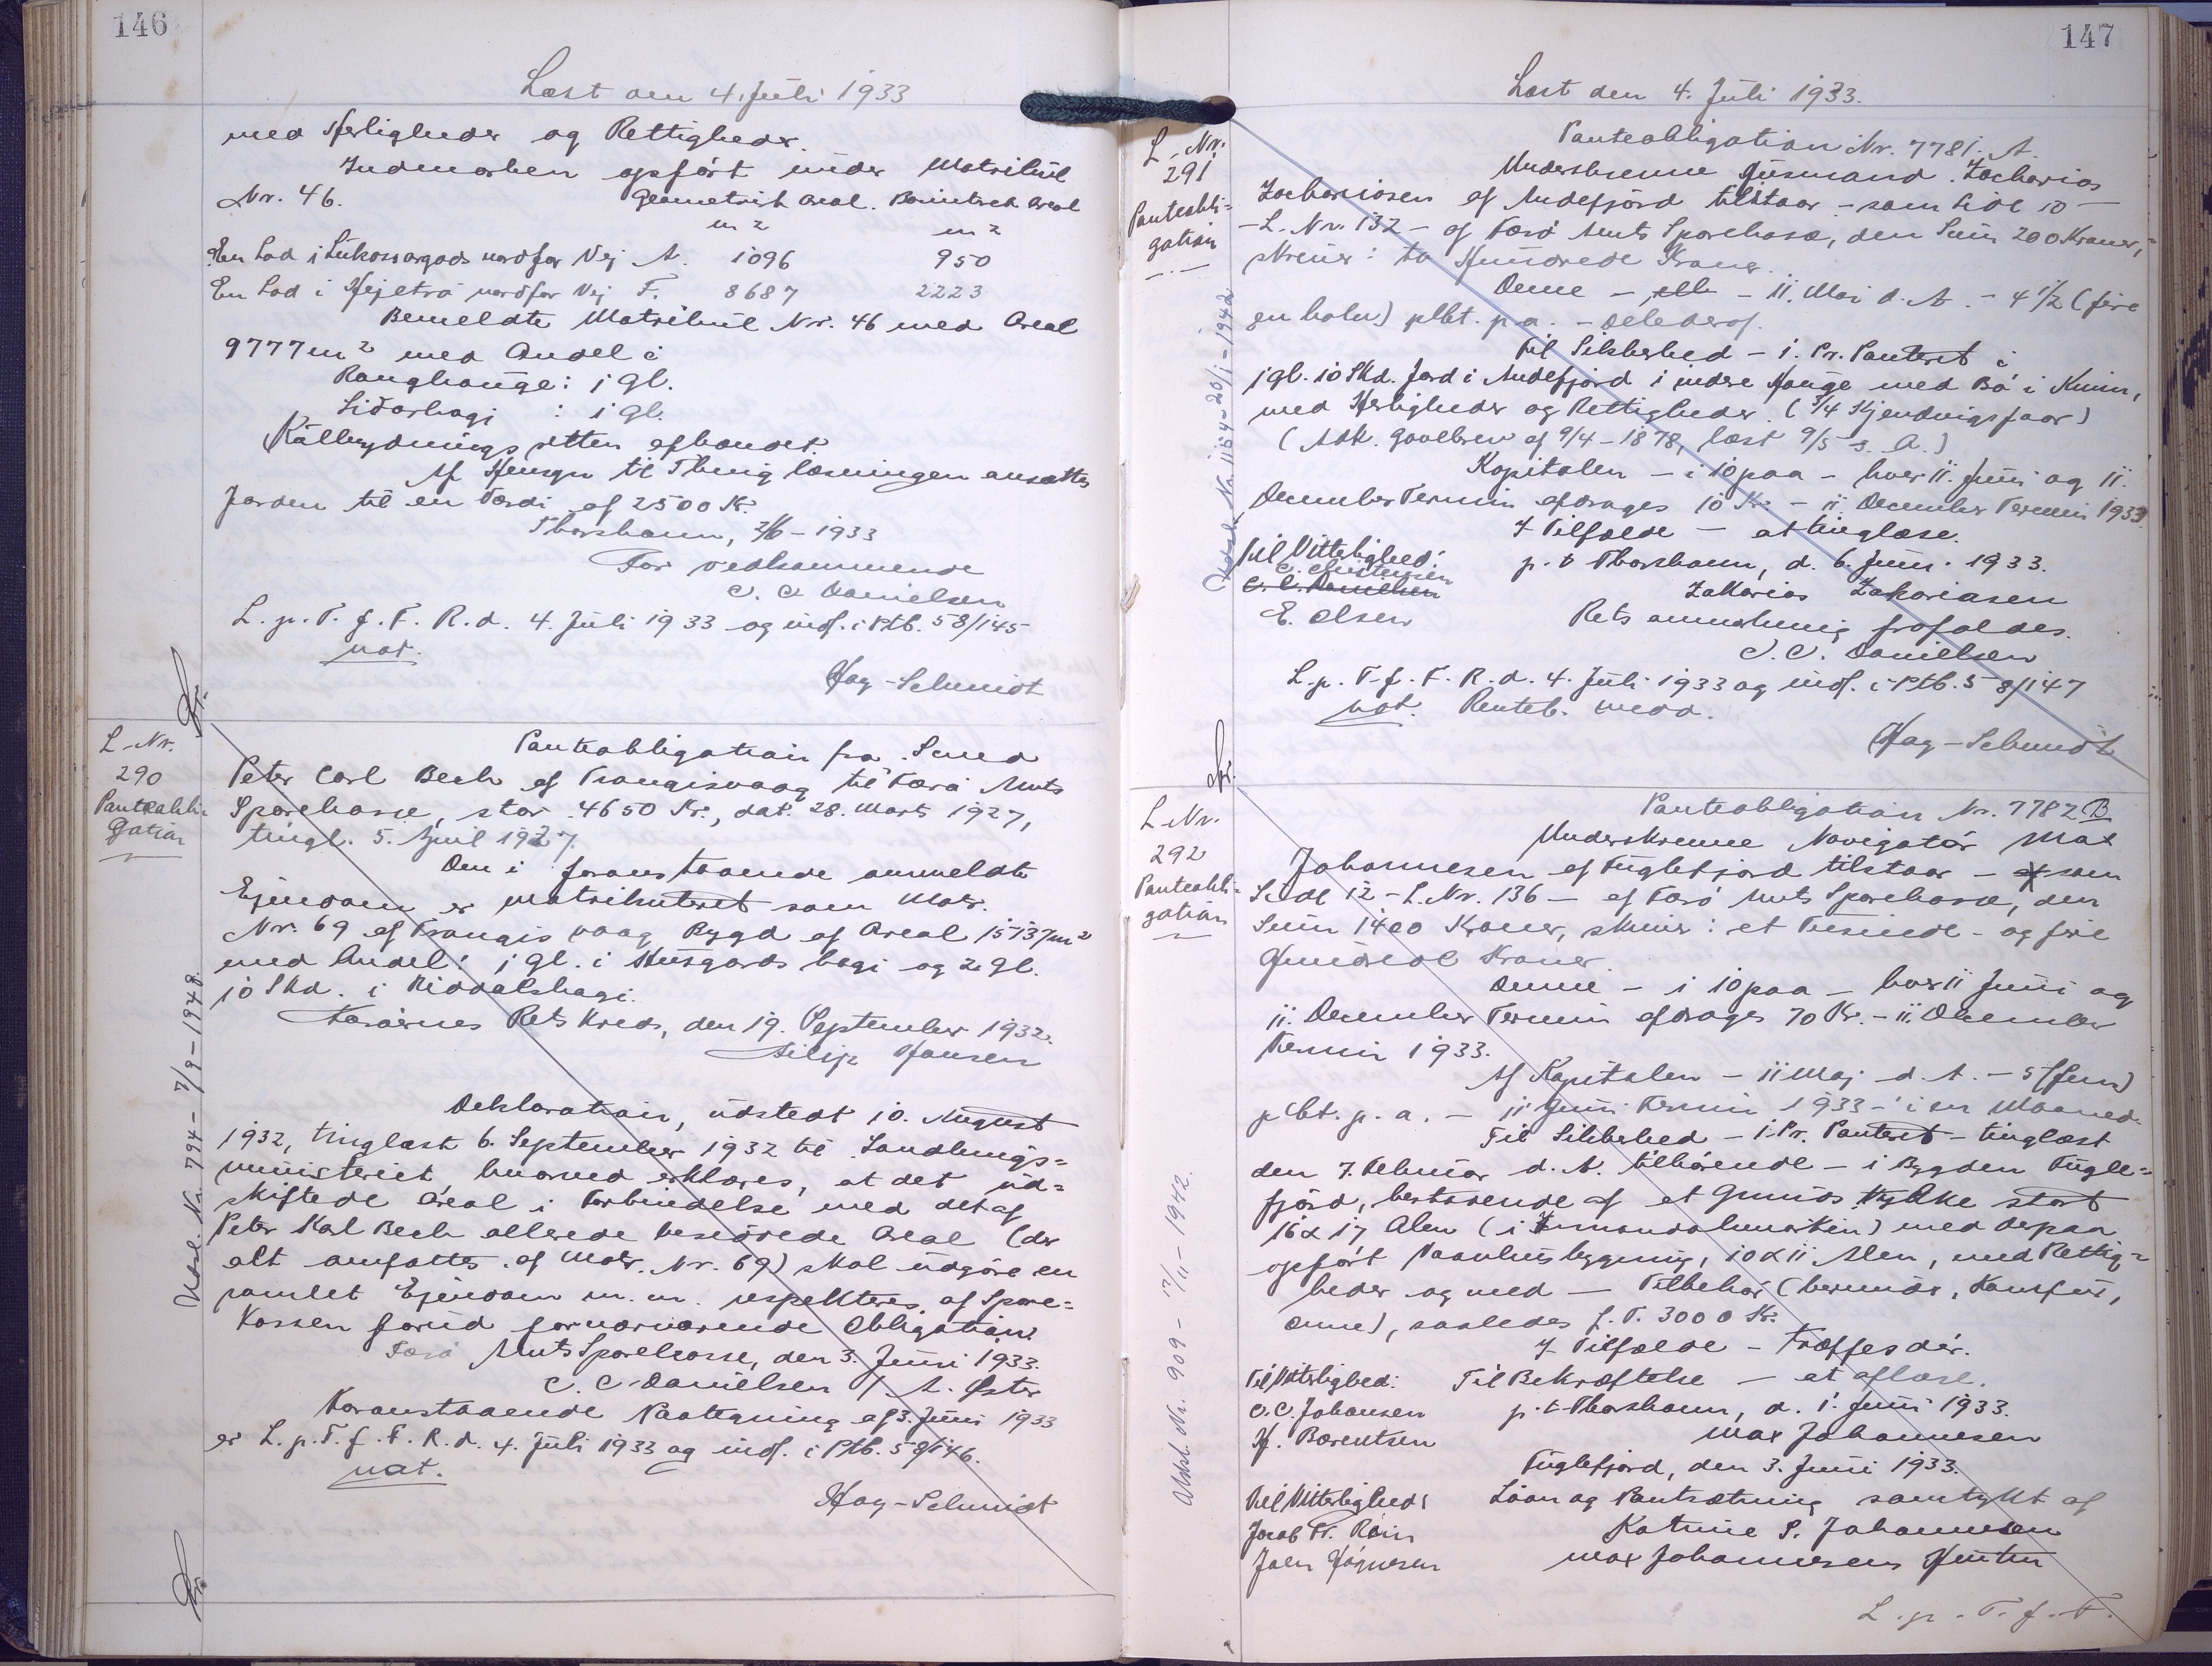 146
Læst den 4. Juli 1933
med Herligheder og Rettigheder.
Indmarken opført under Matrikul
Nr. 46. Geometrisk Areal. Reduceret Areal
m2 m2
En Lod i Lukossargods nordfor Vej A. 1096 950
En Lod i Hejetrå nordfor Vej F. 8687 2223
Bemeldte Matrikul Nr. 46 med Areal
9777 m2 med Andel i
Ranghauge: 1 gl.
Lidarhagi : 1 gl.
Kålbrydningsretten afhændet.
Af Hensyn til Thinglæsningen ansættes
Jorden til en Værdi af 2500 Kr.
Thorshavn, 2/6 - 1933
For vedkommende
C. C. Danielsen
L. p. T. f. F. R. d. 4. Juli 1933 og indf. i Ptb. 58/145
not.
Hag-Schmidt
L-Nr.
290
Panteobli-
gation
Panteobligation fra Smed
Peter Carl Bech af Trangisvaag til Færø Amts
Sparekasse, stor 4650 Kr., dat. 28. Marts 1927,
tingl. 5. April 1927.
Den i foranstaaende anmeldte
Ejendom er matrikuleret som Matr.
Nr. 69 af Trangisvaag Bygd af Areal 15137 m2
med Andel: 1 gl. i Húsgards hagi og 2 gl.
10 Skd. i Riddalshagi.
Færøernes Retskreds, den 19. September 1932.
Filip Hansen
Deklaration, udstedt 10. August
1932, tinglæst 6. September 1932 til Landbrugs=
ministeriet, hvorved erklæres, at det ud=
skiftede Areal i Forbindelse med det af
Peter Karl Bech allerede besiddede Areal (der
alt omfattes af Matr. Nr. 69) skal udgøre en
samlet Ejendom m. m. respekteres af Spare=
kassen forud for nærværende Obligation.
Færø Amts Sparekasse, den 3. Juni 1933.
C. C. Danielsen / A. Øster
Foranstaaende Paategning af 3. Juni 1933
er L. p. T. f. F. R. d. 4. Juli 1933 og indf. i Ptb. 58/146.
not.
Hag-Schmidt
Udsl. Nr. 794 - 7/9 - 1948.
147
Læst den 4. Juli 1933.
L-Nr.
291
Panteobli=
gation
Panteobligation Nr. 7781. A.
Underskrevne Husmand Zacharias
Zachariasen af Andefjord tilstaar - som Side 10 -
- L. Nr. 132 - af Færø Amts Sparekasse, den Sum 200 Kroner,=
skriver: to Hundrede Kroner.
Denne - 11. Maj d. A. - 4 1/2 (fire
en halv) pCt. p. a. - Deleders.
Til Sikkerhed - 1. Pr. Panteret i
1 gl. 10 Skd. Jord i Andefjord i indre Hauge med Bø i Kunin,
med Herligheder og Rettigheder. (3/4 Kjendvigsfaar)
(Adk. Gavebrev af 9/4-1878, læst 9/5 s. A.)
Kapitalen - i 10 paa - hver 11. Juni og 11.
December Termin afdrages 10 Kr. - 11. December Termin 1933.
I Tilfælde - at tinglæse.
Til Vitterlighed: p. t. Thorshavn, d. 6. Juni 1933.
C. Christensen
C. C. Danielsen Zakarias Zakariasen
E. Olsen Rets anmærkning frafaldes.
C. C. Danielsen
L. p. T. f. F. R. d. 4. Juli 1933 og indf. i Ptb. 58/147
not. Renteb. medd.
Hag-Schmidt
Udsl. Nr. 1154 - 20/1 - 1942
L-Nr.
292
Panteobli=
gation
Panteobligation Nr. 7782 B
Underskrevne Navigatør Max
Johannesen af Fuglefjord tilstaar - som
Side 12 - L. Nr. 136 - af Færø Amts Sparekasse, den
Sum 1400 Kroner, skriver: et Tusinde - og fire
Hundrede Kroner.
Denne - i 10 paa - hver 11 Juni og
11. December Termin afdrages 70 Kr. - 11. December
Termin 1933.
Af Kapitalen - 11 Maj d. A. - 5 (fem)
pCt. p. a. - 11 Juni Termin 1933 - i en Maaned.
Til Sikkerhed - 1. Pr. Panteret - tinglæst
den 7. Februar d. A. tilhørende - i Bygden Fugle=
fjord, bestaaende af et Grundstykke stort
16 x 17 Alen (i med derpaa
opført Vaaningshusbygning, 10 x 11 Alen, med Rettig=
heder og med - Tilbehør (herunder, Komfur,
Ovne), saaledes f. T. 3000 Kr.
I Tilfælde - træffes dér.
Til Vitterlighed: Til Bekræftelse - at aflæse.
O. C. Johansen p. t. Thorshavn, d. 1. Juni 1933.
H. Bærentsen Max Johannesen
Fuglefjord, den 3. Juni 1933.
Til Vitterlighed: Laan og Pantsætning samtykt af
Jacob Fr. Røin Katrine S. Johannesen
Joen Højnesen Max Johannesens Hustru
L. p. T. f. F.
Udsl. Nr. 909 - 17/11 - 1942.